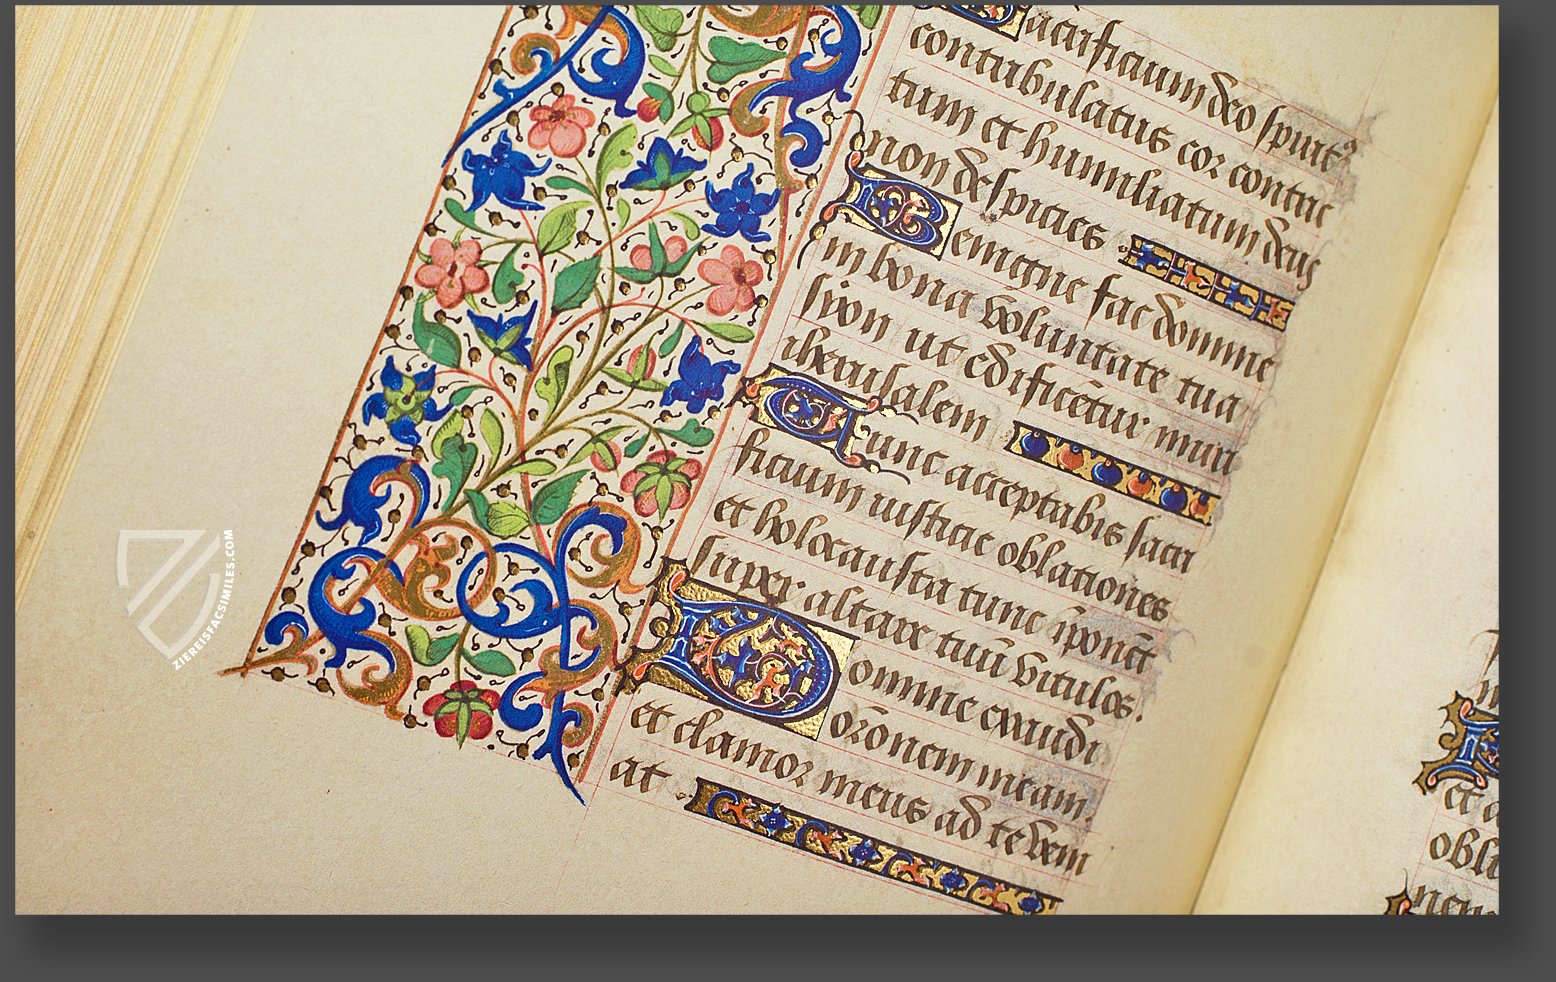 Sacrificium deo spirit᷒
contribulatus cor contri
tum et humiliatum deus
non despicies
Benigne fac domine
in bona voluntate tua
syon ut edificētur muri
iherusalem
Tunc acceptabis sacri
ficium iusticie oblationes
et holocausta tunc īponēt
super altare tuū vitulos.
Domine exaudi
orōnem meam.
et clamor meus ad te veni
at
et a
obla
ZIEREISFACSIMILES.COM